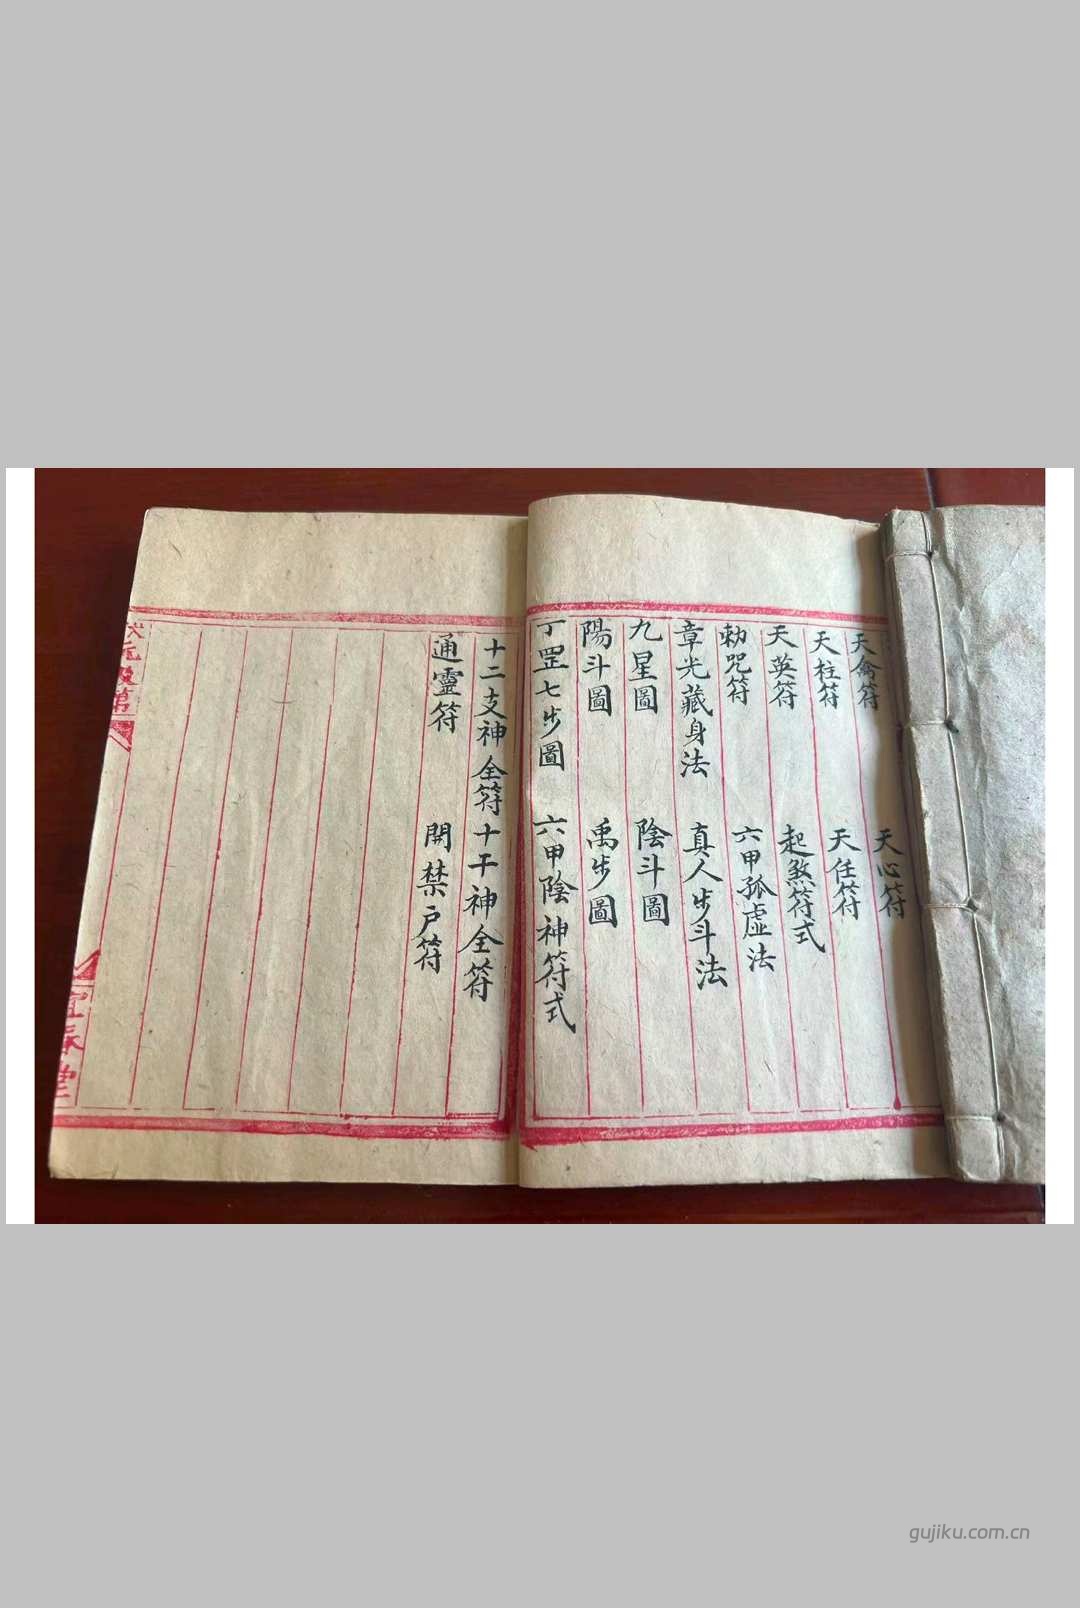 天禽符 天心符
天柱符 天任符
天英符 起煞符式
勅咒符 六甲孤虛法
章光藏身法 真人步斗法
九星圖 陰斗圖
陽斗圖 禹步圖
丁罡七步圖 六甲陰神符式
十二支神全符 十干神全符
通靈符 開禁戶符
gujiku.com.cn